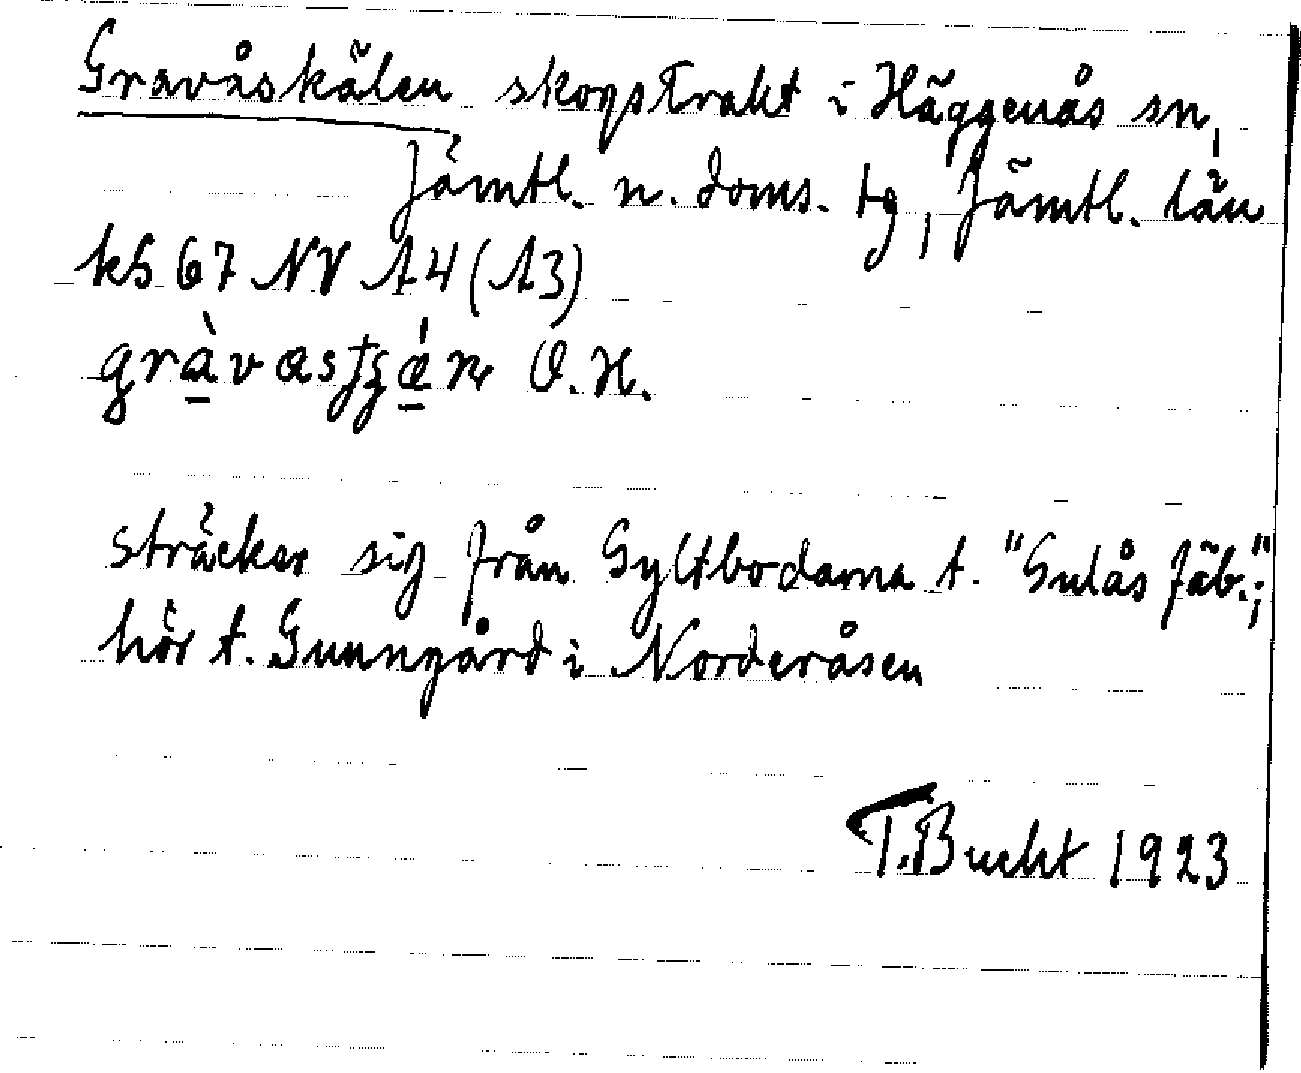 Gravåskälen skogstrakt i Häggenås sn,
Jämtl. n. doms. tg, Jämtl. län
kb 67 NV A4 (A3)
O.H.
sträcker sig från Gyltbodarna t. "Sulås fäb.";
hör t. Gunngård i Norderåsen
T. Bucht 1923